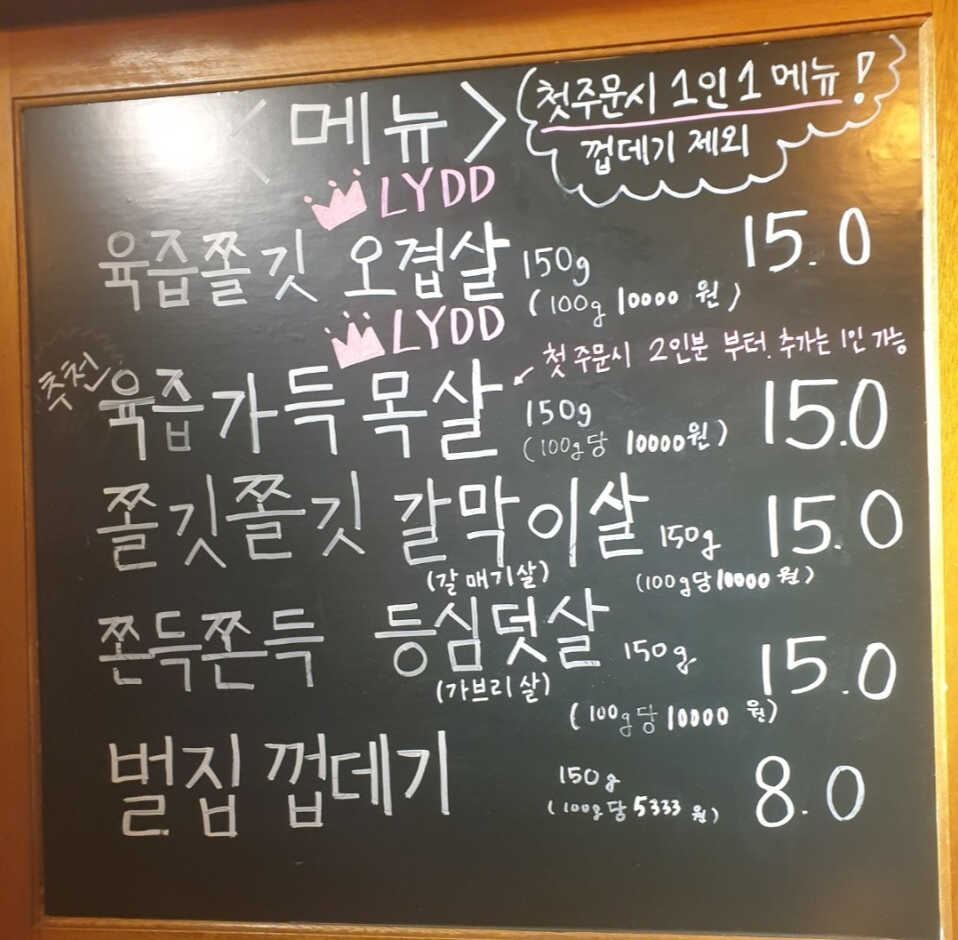 <메뉴>
첫주문시 1인 1 메뉴!
껍데기 제외
LYDD
육즙쫄깃 오겹살 150g 15.0
(100g 10000 원)
LYDD
첫 주문시 2인분 부터. 추가는 1인 가능
추천
육즙가득 목살 150g 15.0
(100g당 10000원)
쫄깃쫄깃 갈막이살 150g 15.0
(갈매기살) (100g당 10000 원)
쫀득쫀득 등심덧살 150g 15.0
(가브리살)
(100g당 10000 원)
벌집 껍데기 150g 8.0
(100g당 5333 원)